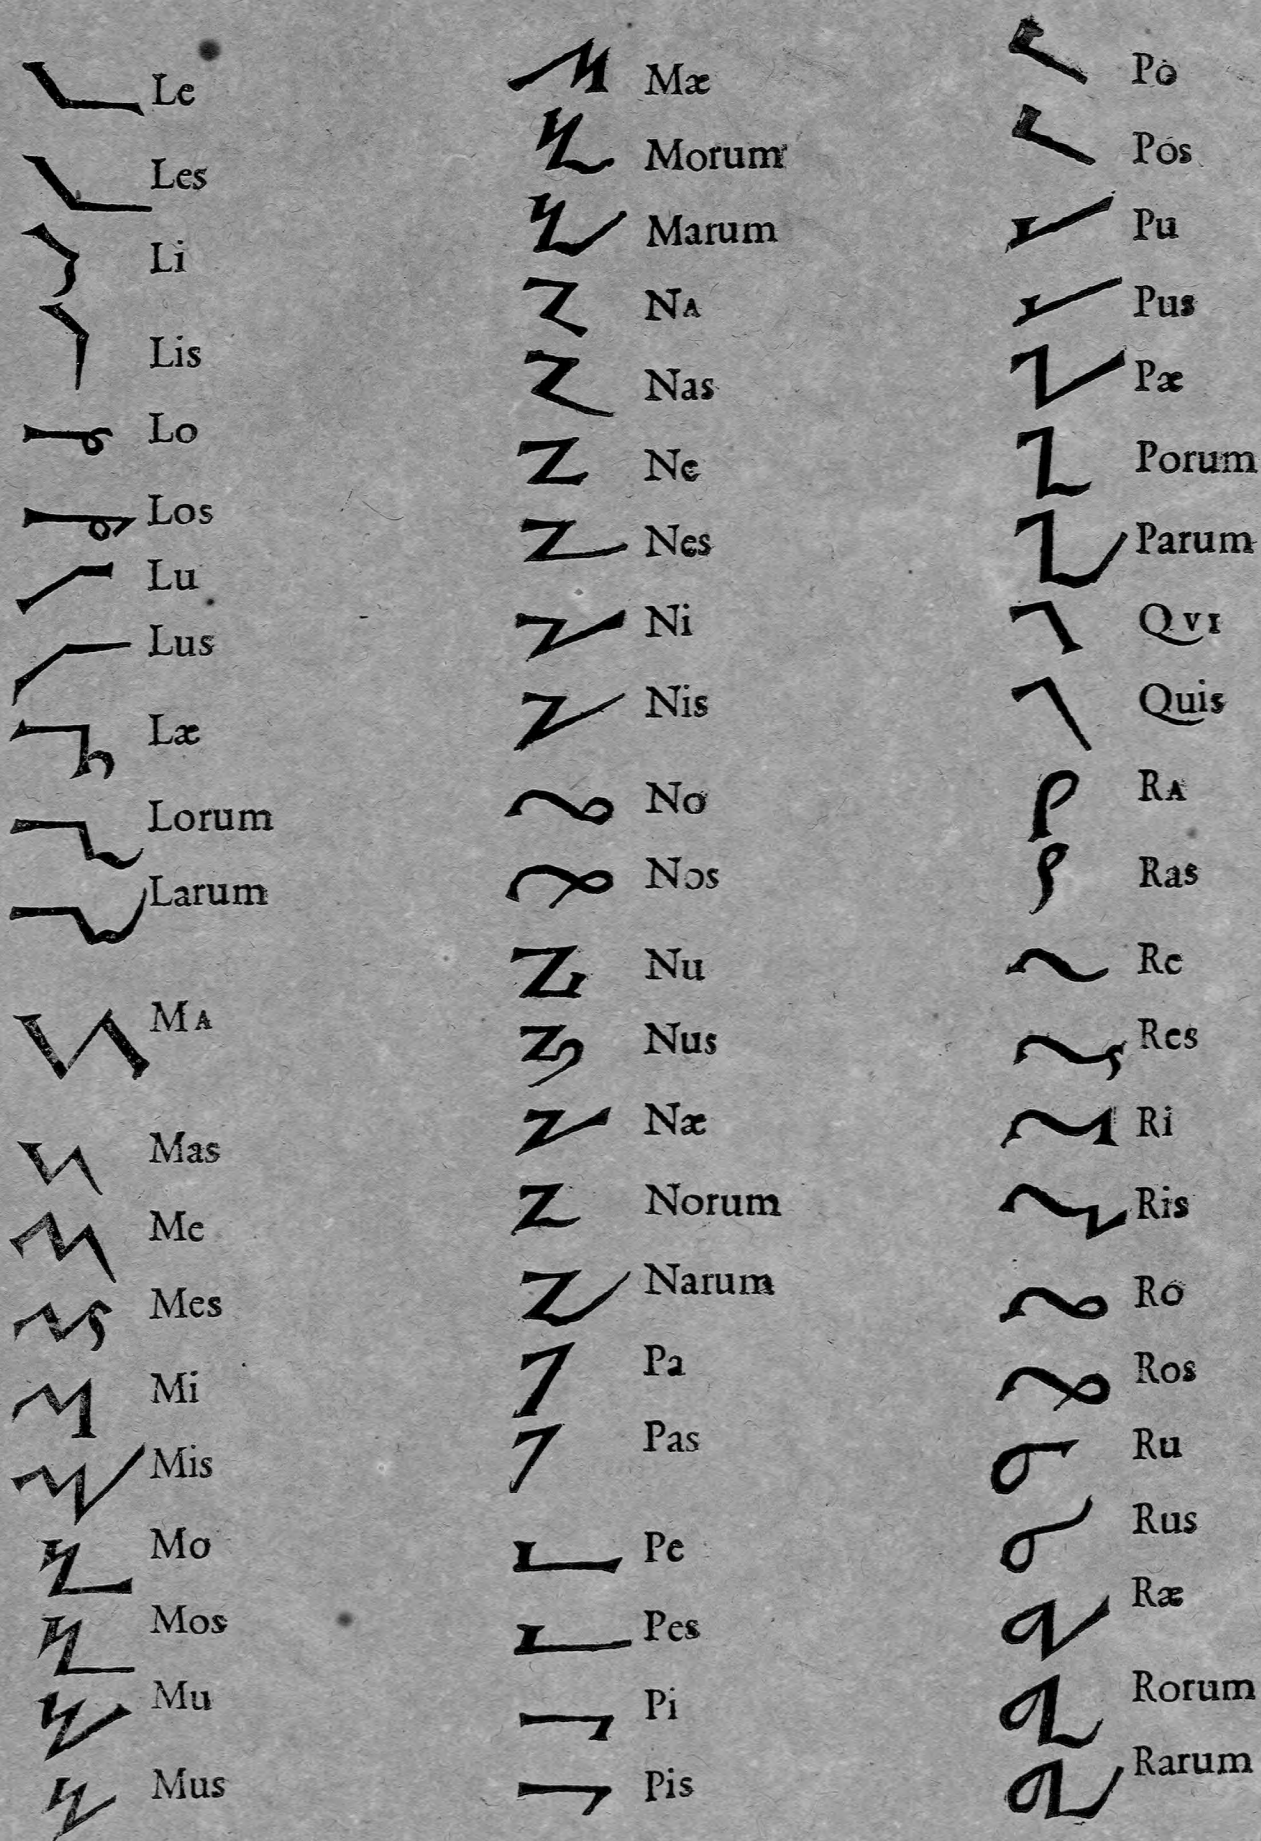 Le
Les
Li
Lis
Lo
Los
Lu
Lus
Læ
Lorum
Larum
MA
Mas
Me
Mes
Mi
Mis
Mo
Mos
Mu
Mus
Mæ
Morum
Marum
NA
Nas
Ne
Nes
Ni
Nis
No
Nos
Nu
Nus
Næ
Norum
Narum
Pa
Pas
Pe
Pes
Pi
Pis
Po
Pos
Pu
Pus
Pæ
Porum
Parum
QVI
Quis
RA
Ras
Re
Res
Ri
Ris
Ro
Ros
Ru
Rus
Ræ
Rorum
Rarum